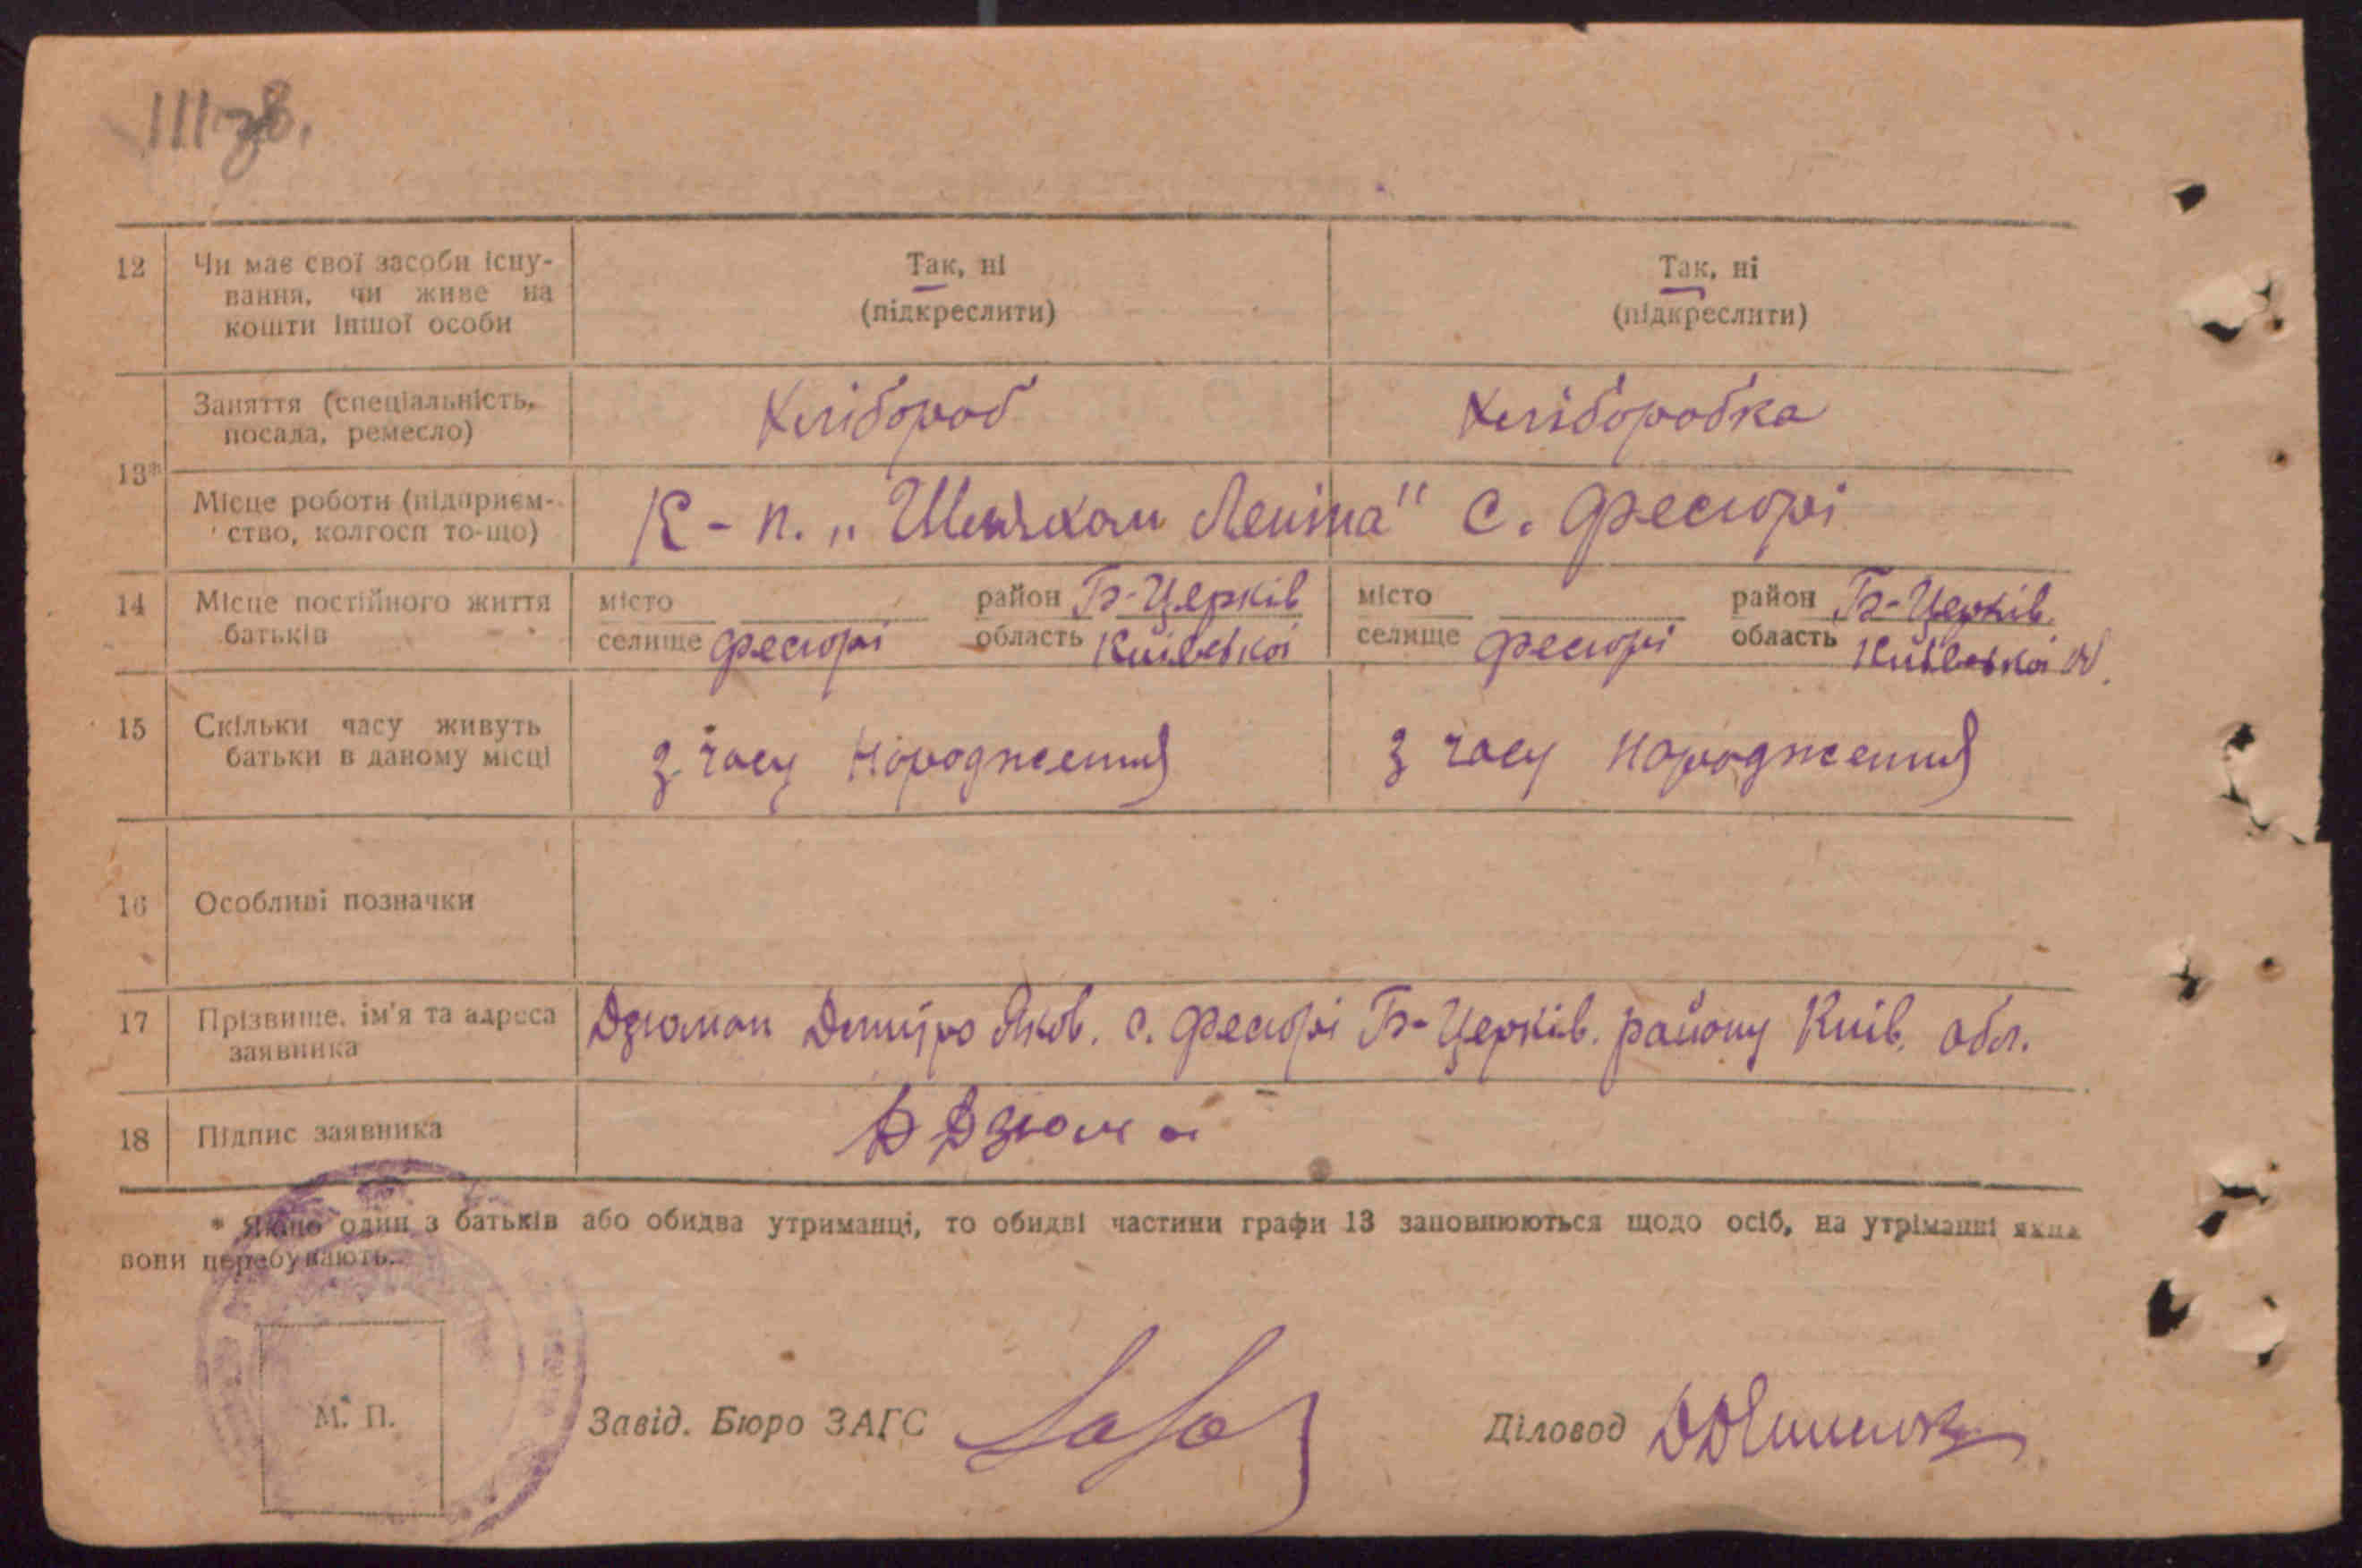 12 Чи має свої засоби існу-
вання, чи живе на
кошти іншої особи
Так, ні
(підкреслити)
Так, ні
(підкреслити)
13*
Заняття (спеціальність,
посада, ремесло)
Хлібороб
Хліборобка
Місце роботи (підприєм-
ство, колгосп то-що)
К-п. „Шляхом Леніна" с. Фесюрі
14 Місце постійного життя
батьків
місто
селище Фесюрі
район Б-Церків
область Київської
місто
селище Фесюрі
район Б-Церків.
область Київської
15 Скільки часу живуть
батьки в даному місці
з часу народження
з часу народження
16 Особливі позначки
17 Прізвище, ім'я та адреса
заявника
Дзюман Дмитро Яков. с. Фесюрі Б-Церків. району Київ. обл.
18 Підпис заявника
Д Дзюма
* Якщо один з батьків або обидва утриманці, то обидві частини графи 13 заповнюються щодо осіб, на утріманні яких
вони перебувають.
М. П.
Завід. Бюро ЗАГС
Діловод